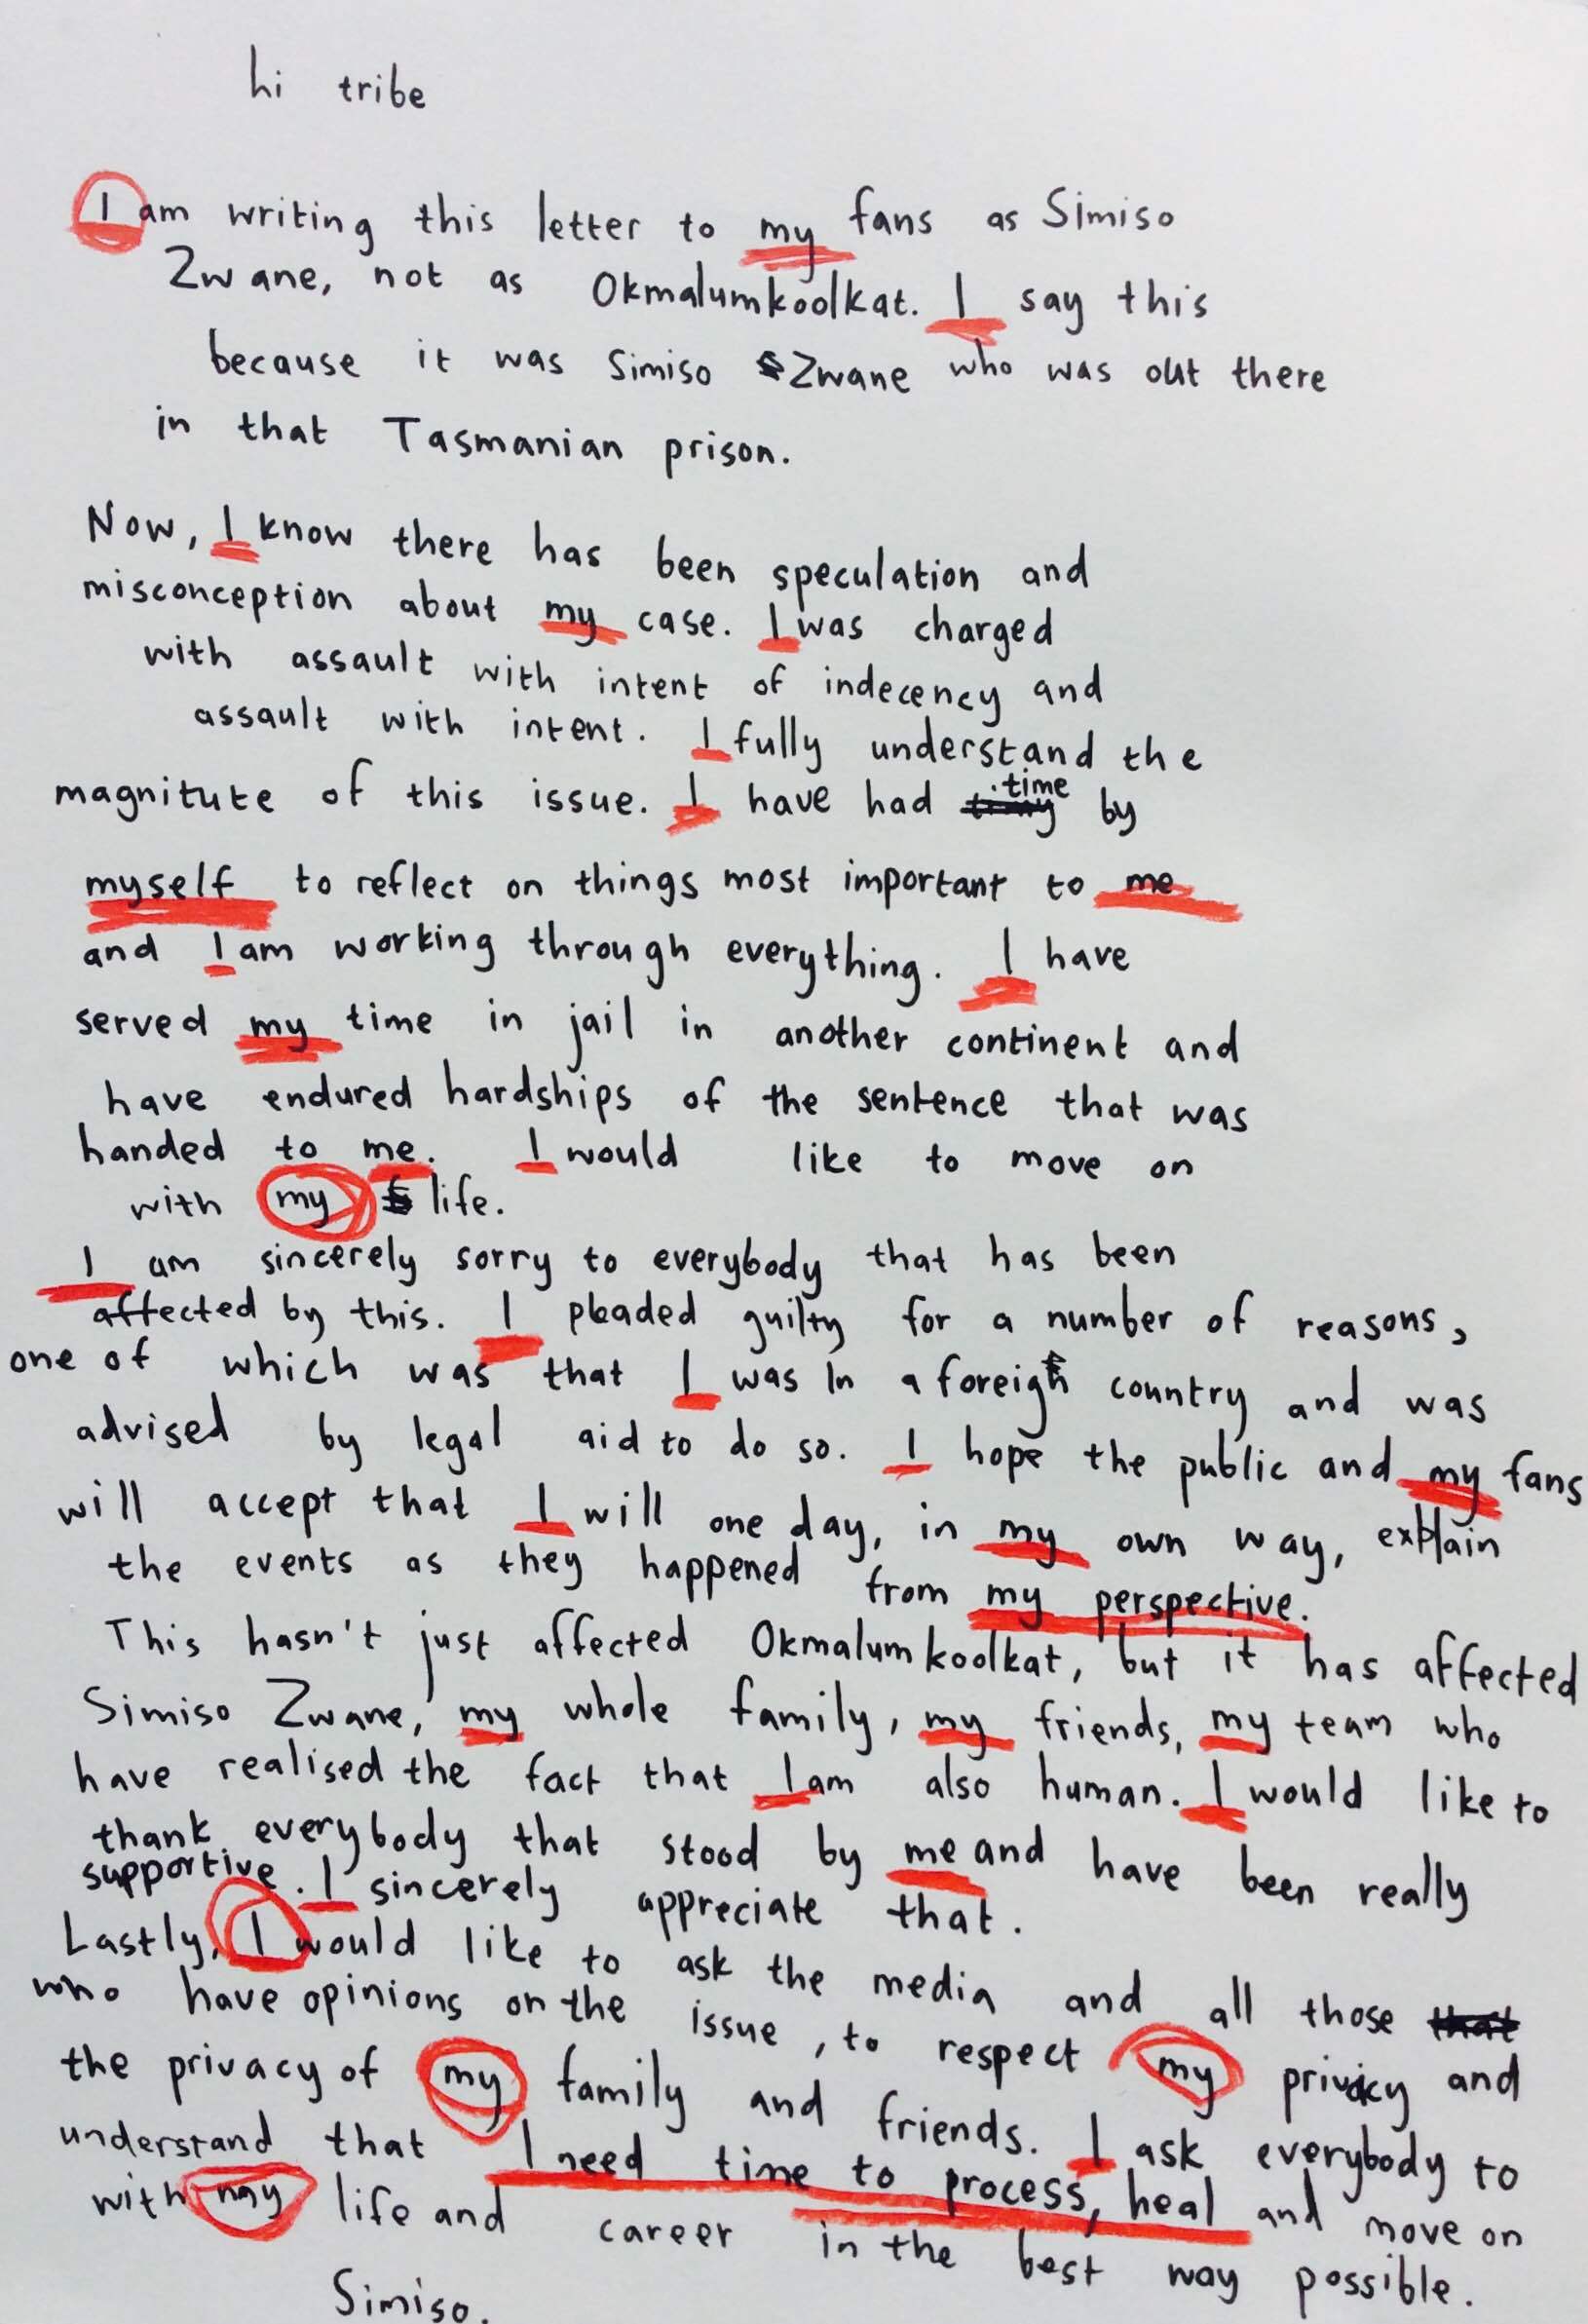 hi tribe
I am writing this letter to my fans as Simiso
Zwane, not as Okmalumkoolkat. I say this
because it was Simiso Zwane who was out there
in that Tasmanian prison.
Now, I know there has been speculation and
misconception about my case. I was charged
with assault with intent of indecency and
assault with intent. I fully understand the
magnitute of this issue. I have had time by
myself to reflect on things most important to me
and I am working through everything. I have
served my time in jail in another continent and
have endured hardships of the sentence that was
handed to me. I would like to move on
with my life.
I am sincerely sorry to everybody that has been
affected by this. I pleaded guilty for a number of reasons,
one of which was that I was in a foreign country and was
advised by legal aid to do so. I hope the public and my fans
will accept that I will one day, in my own way, explain
the events as they happened from my perspective.
This hasn't just affected Okmalumkoolkat, but it has affected
Simiso Zwane, my whole family, my friends, my team who
have realised the fact that I am also human. I would like to
thank everybody that stood by me and have been really
supportive. I sincerely appreciate that.
Lastly, I would like to ask the media and all those
who have opinions on the issue, to respect my privacy and
the privacy of my family and friends. I ask everybody to
understand that I need time to process, heal and move on
with my life and career in the best way possible.
Simiso.